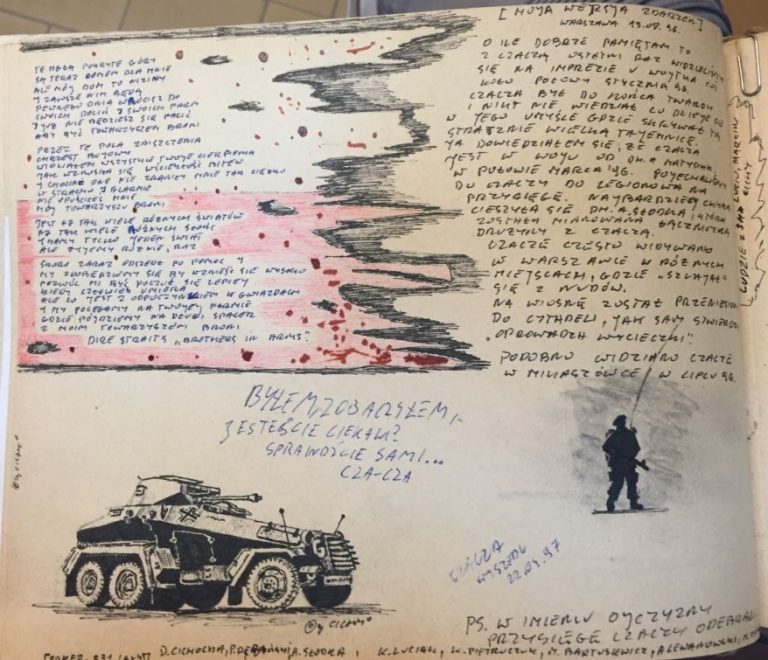 TE MGŁĄ POKRYTE GÓRY
SĄ TERAZ DOMEM DLA MNIE
ALE MÓJ DOM TO NIZINY
I ZAWSZE NIM BĘDĄ
PEWNEGO DNIA WRÓCISZ DO
SWOICH DOLIN I SWOICH FARM
I JUŻ NIE BĘDZIESZ SIĘ PALIĆ
ABY BYĆ TOWARZYSZEM BRONI
PRZEZ TE POLA ZNISZCZENIA
CHRZEST BOJOWY
WIDZIAŁEM WSZYSTKIE TWOJE CIERPIENIA
JAK WZMAGA SIĘ WŚCIEKŁOŚĆ BITEW
I CHOCIAŻ ONE NIE ZRANIŁY MNIE TAK CIĘŻKO
W STRACHU I ALARMIE
NIE OPUŚCIŁEŚ MNIE
MÓJ TOWARZYSZU BRONI
JEST AŻ TAK WIELE RÓŻNYCH ŚWIATÓW
AŻ TAK WIELE RÓŻNYCH SŁOŃC
I MAMY TYLKO JEDEN ŚWIAT
ALE ŻYJEMY RÓŻNIE, RAZ
SŁOŃ ZARAZ ODSZEDŁ PO
KIEDY CZŁOWIEK UMIERA
ALE CO JEST Z ODPOCZYNKIEM W GWIAZDACH
I MY POLEGAMY NA TWOJEJ FARMIE
GDZIE PÓJDZIEMY NA DŁUGI SPACER
Z MOIM TOWARZYSZEM BRONI
DIRE STRAITS „BROTHERS IN ARMS"
[MOJA WERSJA ZDARZEŃ]
WARSZAWA 13.09.96.
O ILE DOBRZE PAMIĘTAM TO
Z CZACZĄ OSTATNI RAZ WIDZIELIŚMY
SIĘ NA IMPREZIE U WOJTKA
KOŁO POŁOWY STYCZNIA 96.
CZACZA BYŁ DO KOŃCA TWARDY
I NIKT NIE WIEDZIAŁ CO DZIEJE SIĘ
W JEGO UMYŚLE GDZIE SKRYWAŁ TĄ
STRASZNIE WIELKĄ TAJEMNICĘ.
JA DOWIEDZIAŁEM SIĘ, ŻE CZACZA
JEST W WOJU OD DH.A MATYSIAKA
W POŁOWIE MARCA '96. POJECHALIŚMY
DO CZACZY DO LEGIONOWA NA
PRZYSIĘGĘ. NAJBARDZIEJ CHYBA
CIESZYŁA SIĘ DH. A. SŁODKA, KTÓRA
ZOSTAŁA MIANOWANA ŁĄCZNICZKĄ
DRUŻYNY Z CZACZĄ.
CZACZĘ CZĘSTO WIDYWANO
W WARSZAWCE W RÓŻNYCH
MIEJSCACH, GDZIE „SZLAJAŁ"
SIĘ Z NUDÓW.
NA WIOSNĘ ZOSTAŁ PRZENIESIONY
DO CYTADELI, JAK SAM STWIERDZIŁ
„OPROWADZA WYCIECZKI".
PODOBNO WIDZIANO CZACZĘ
W MIŁASZÓWCE W LIPCU 96.
LUDZIE Z SAD LUCJU, MARCIN
CICHY
BYŁEM, ZOBACZYŁEM,
JESTEŚCIE CIEKAWI?
SPRAWDŹCIE SAMI...
CZA-CZA
©by CICHY
©by CICHY
CZACZA
WYSZEDŁ
22.04.97
PS. W IMIENIU OJCZYZNY
PRZYSIĘGĘ CZACZY ODEBRALI
D. CICHOCKA, A. SŁODKA, K. LUCIAK, K. PIETRUCZUK, M. BARTUSIEWICZ, A. LEWANDOWSKI,